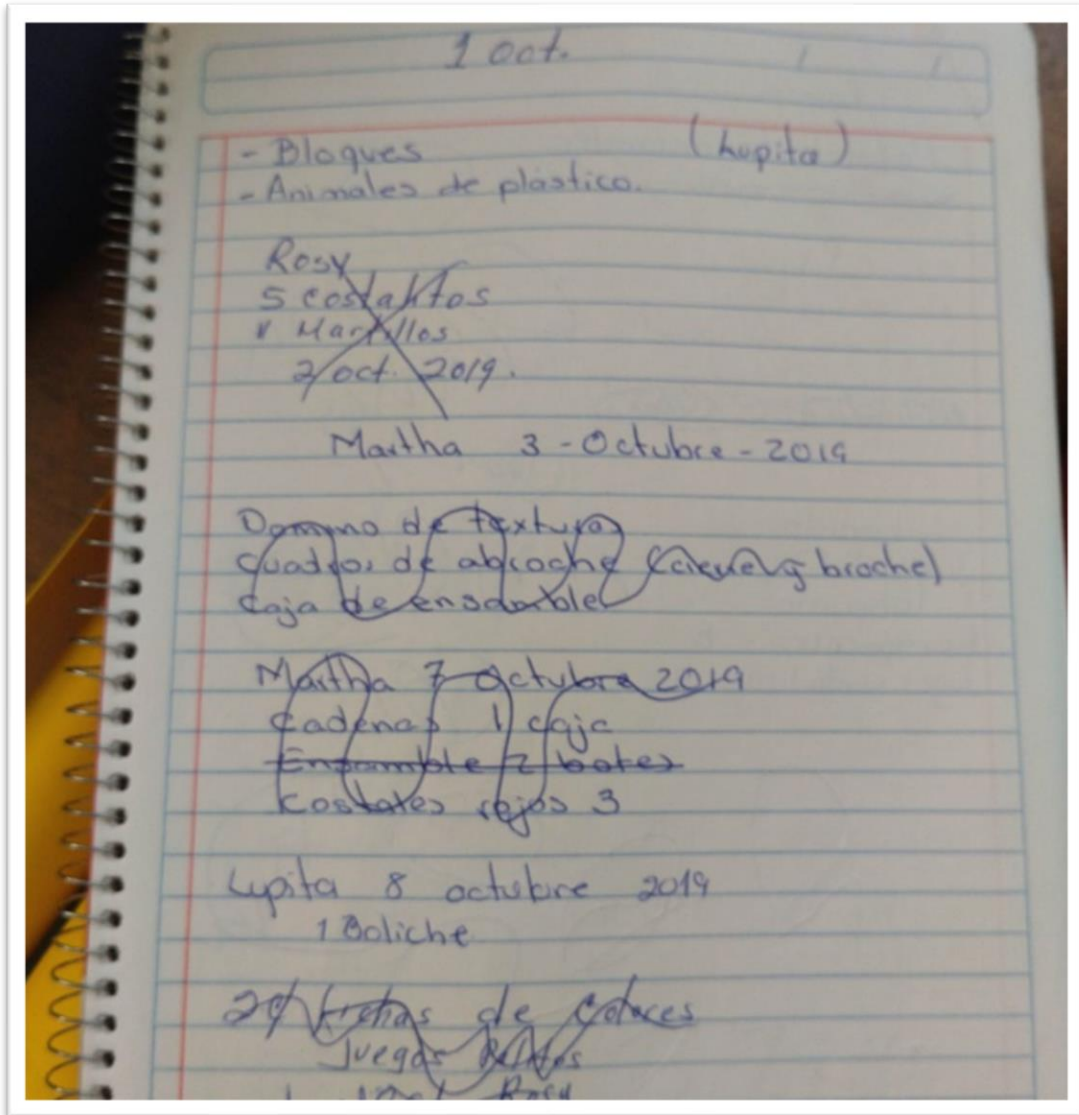 1 oct.
- Bloques (Lupita)
- Animales de plástico.
Rosy
5 costalitos
Martillos
2/oct. 2019.
Martha 3 - Octubre - 2019
Domino de textura
Cuadros de abroche ( broche)
Caja de ensamble
Martha 7 octubre 2019
Cadenas 1 caja
Ensamble 2 botes
Costales rojos 3
Lupita 8 octubre 2019
1 Boliche
fichas de colores
Juegos
Rosy